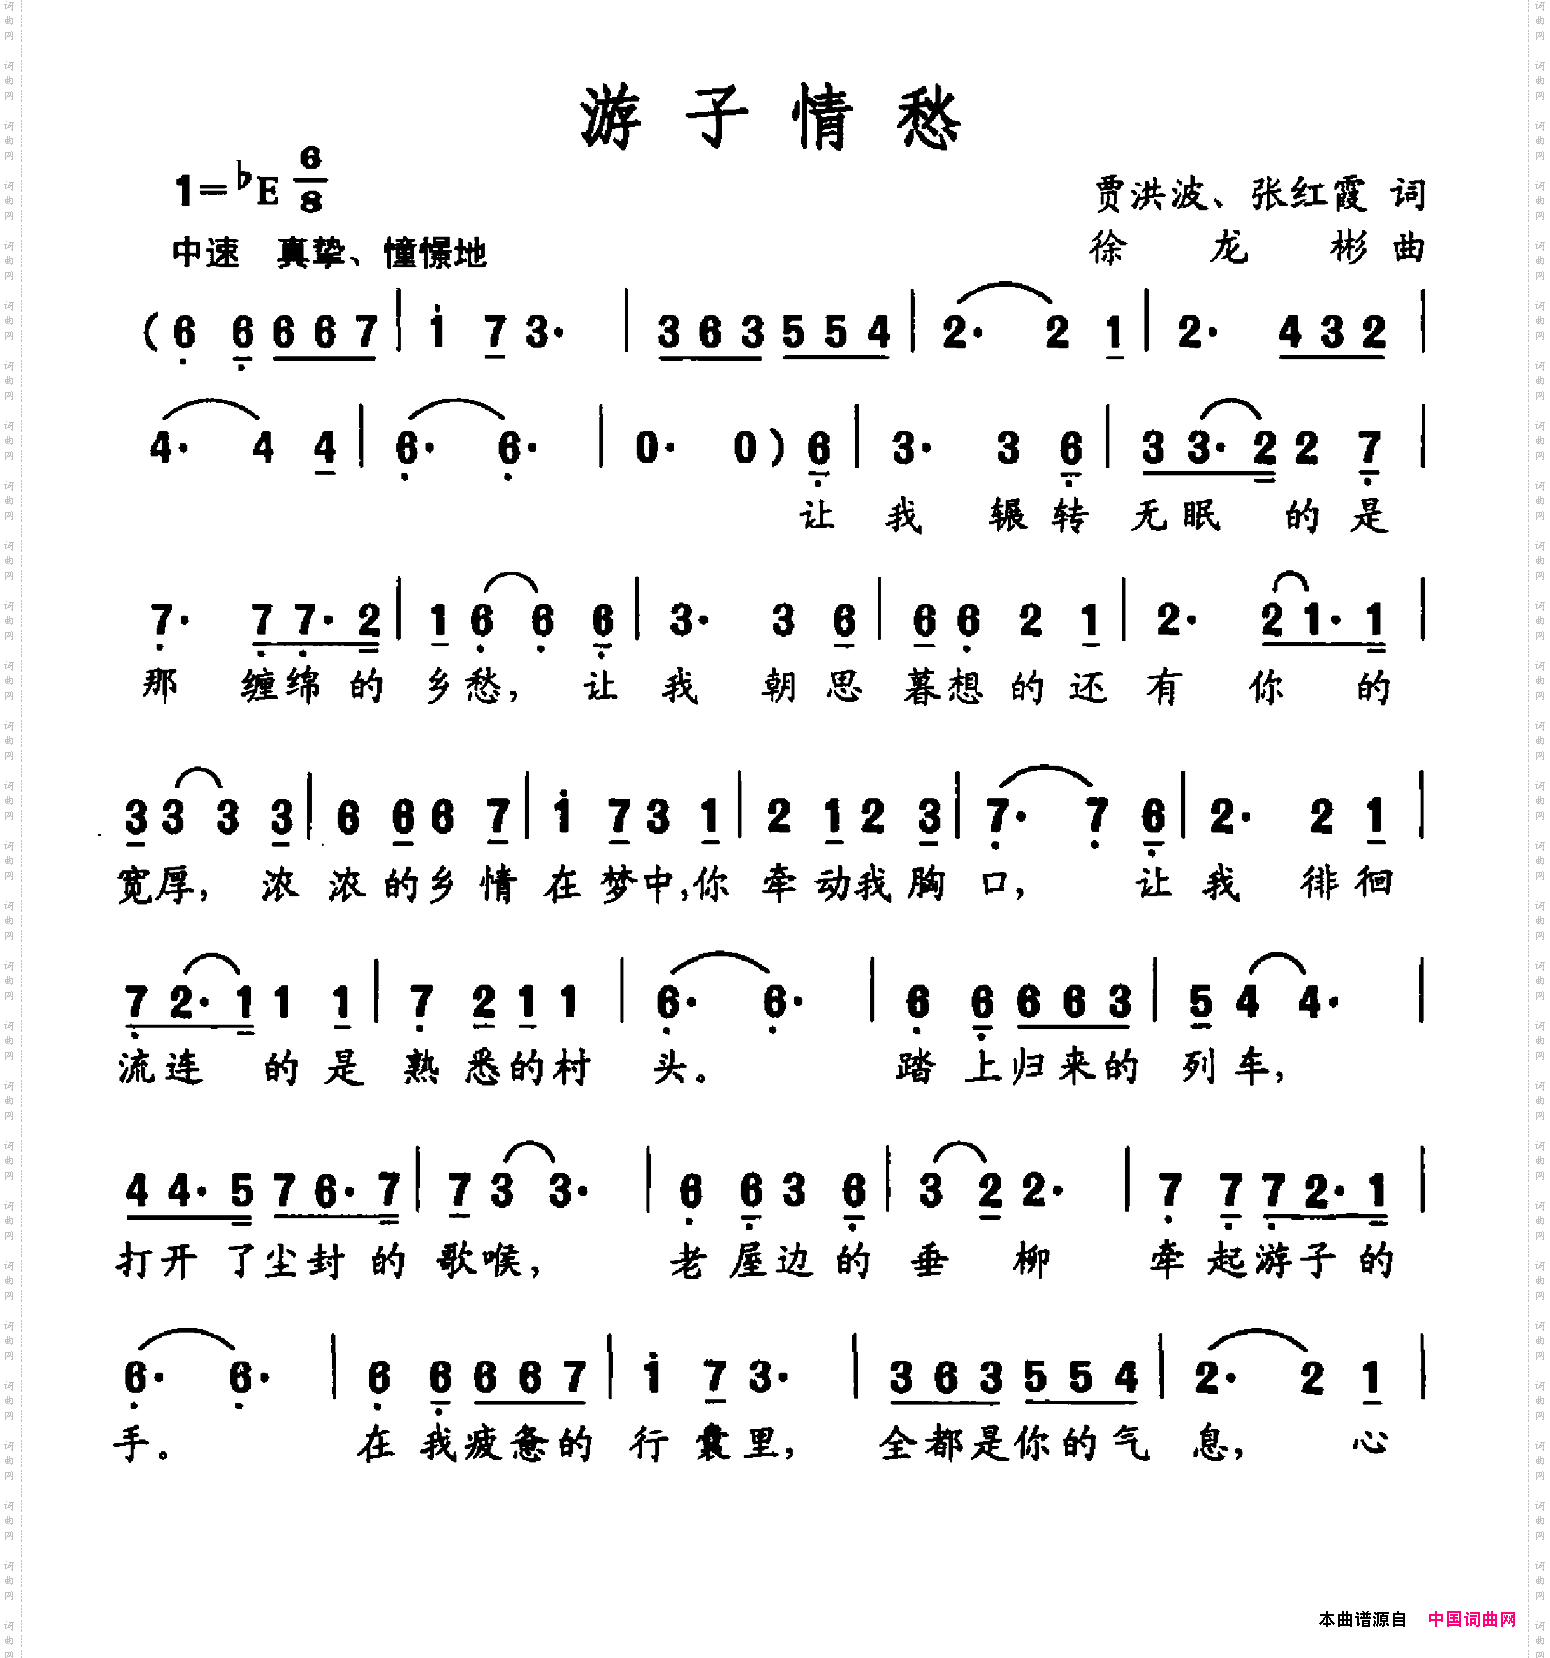 游子情愁
1=♭E 6/8
贾洪波、张红霞 词
中速 真挚、憧憬地
徐龙彬 曲
( 6 6 6 6 7 | 1 7 3· | 3 6 3 5 5 4 | 2· 2 1 | 2· 4 3 2 |
4· 4 4 | 6· 6· | 0· 0 ) 6 | 3· 3 6 | 3 3· 2 2 7 |
让 我 辗 转 无 眠 的 是
7· 7 7· 2 | 1 6 6 6 | 3· 3 6 | 6 6 2 1 | 2· 2 1· 1 |
那 缠绵 的 乡愁, 让 我 朝 思 暮想 的 还 有 你 的
3 3 3 3 | 6 6 6 7 | 1 7 3 1 | 2 1 2 3 | 7· 7 6 | 2· 2 1 |
宽厚, 浓 浓 的乡 情 在 梦中,你 牵 动我 胸 口, 让 我 徘 徊
7 2· 1 1 1 | 7 2 1 1 | 6· 6· | 6 6 6 6 3 | 5 4 4· |
流连 的 是 熟 悉的村 头。 踏 上归来的 列车,
4 4· 5 7 6· 7 | 7 3 3· | 6 6 3 6 | 3 2 2· | 7 7 7 2· 1 |
打开 了尘封 的 歌喉, 老 屋边 的 垂 柳 牵 起游子的
6· 6· | 6 6 6 6 7 | 1 7 3· | 3 6 3 5 5 4 | 2· 2 1 |
手。 在 我疲惫的 行 囊里, 全都是你的气 息, 心
本曲谱源自 中国词曲网